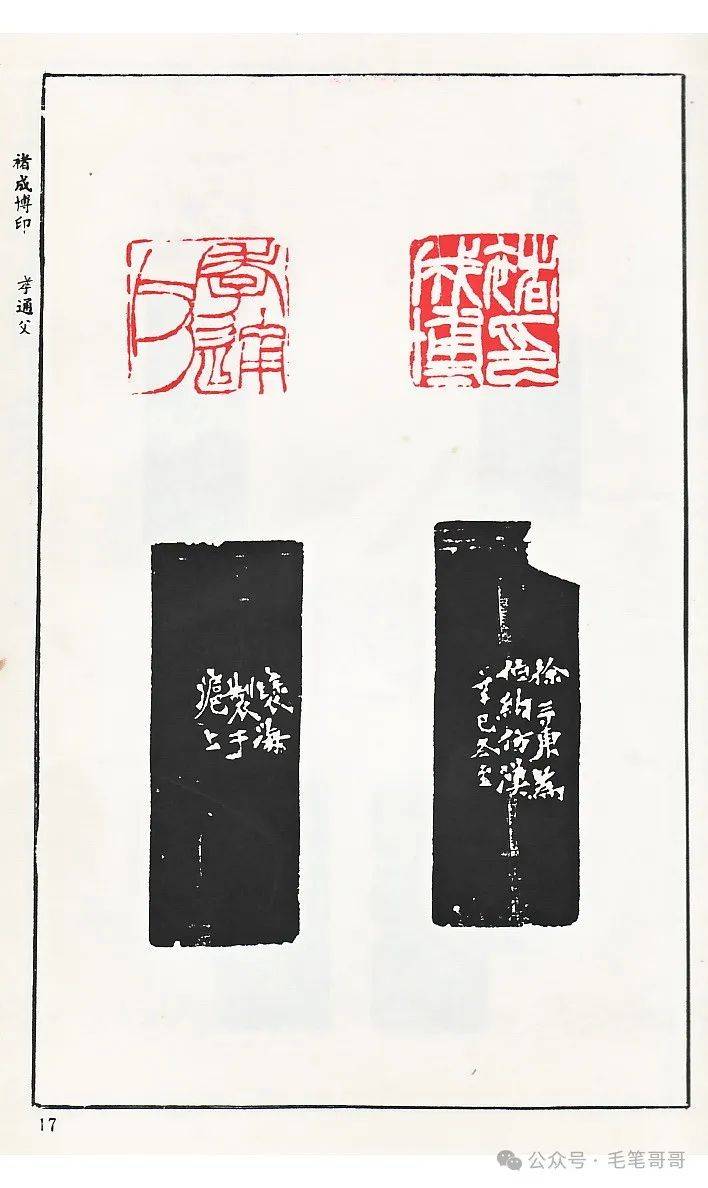 褚成博印
孝通父
褚印
成博
孝通
父
徐三庚為
伯約仿漢
辛巳冬
褎海
製于
滬上
17
公众号·毛笔哥哥